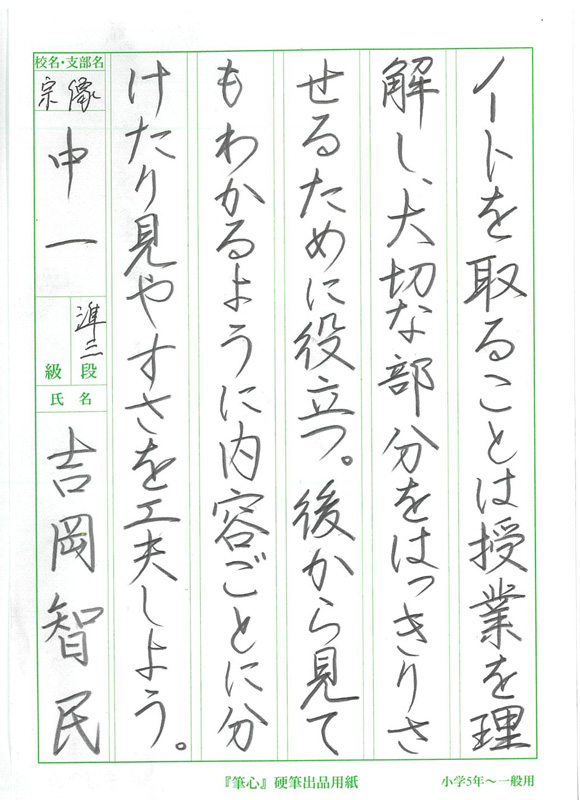 ノートを取ることは授業を理
解し、大切な部分をはっきりさ
せるために役立つ。後から見て
もわかるように内容ごとに分
けたり見やすさを工夫しよう。
校名・支部名
宗像
中一
準三
級 段
氏名
吉岡智民
『筆心』硬筆出品用紙
小学5年〜一般用